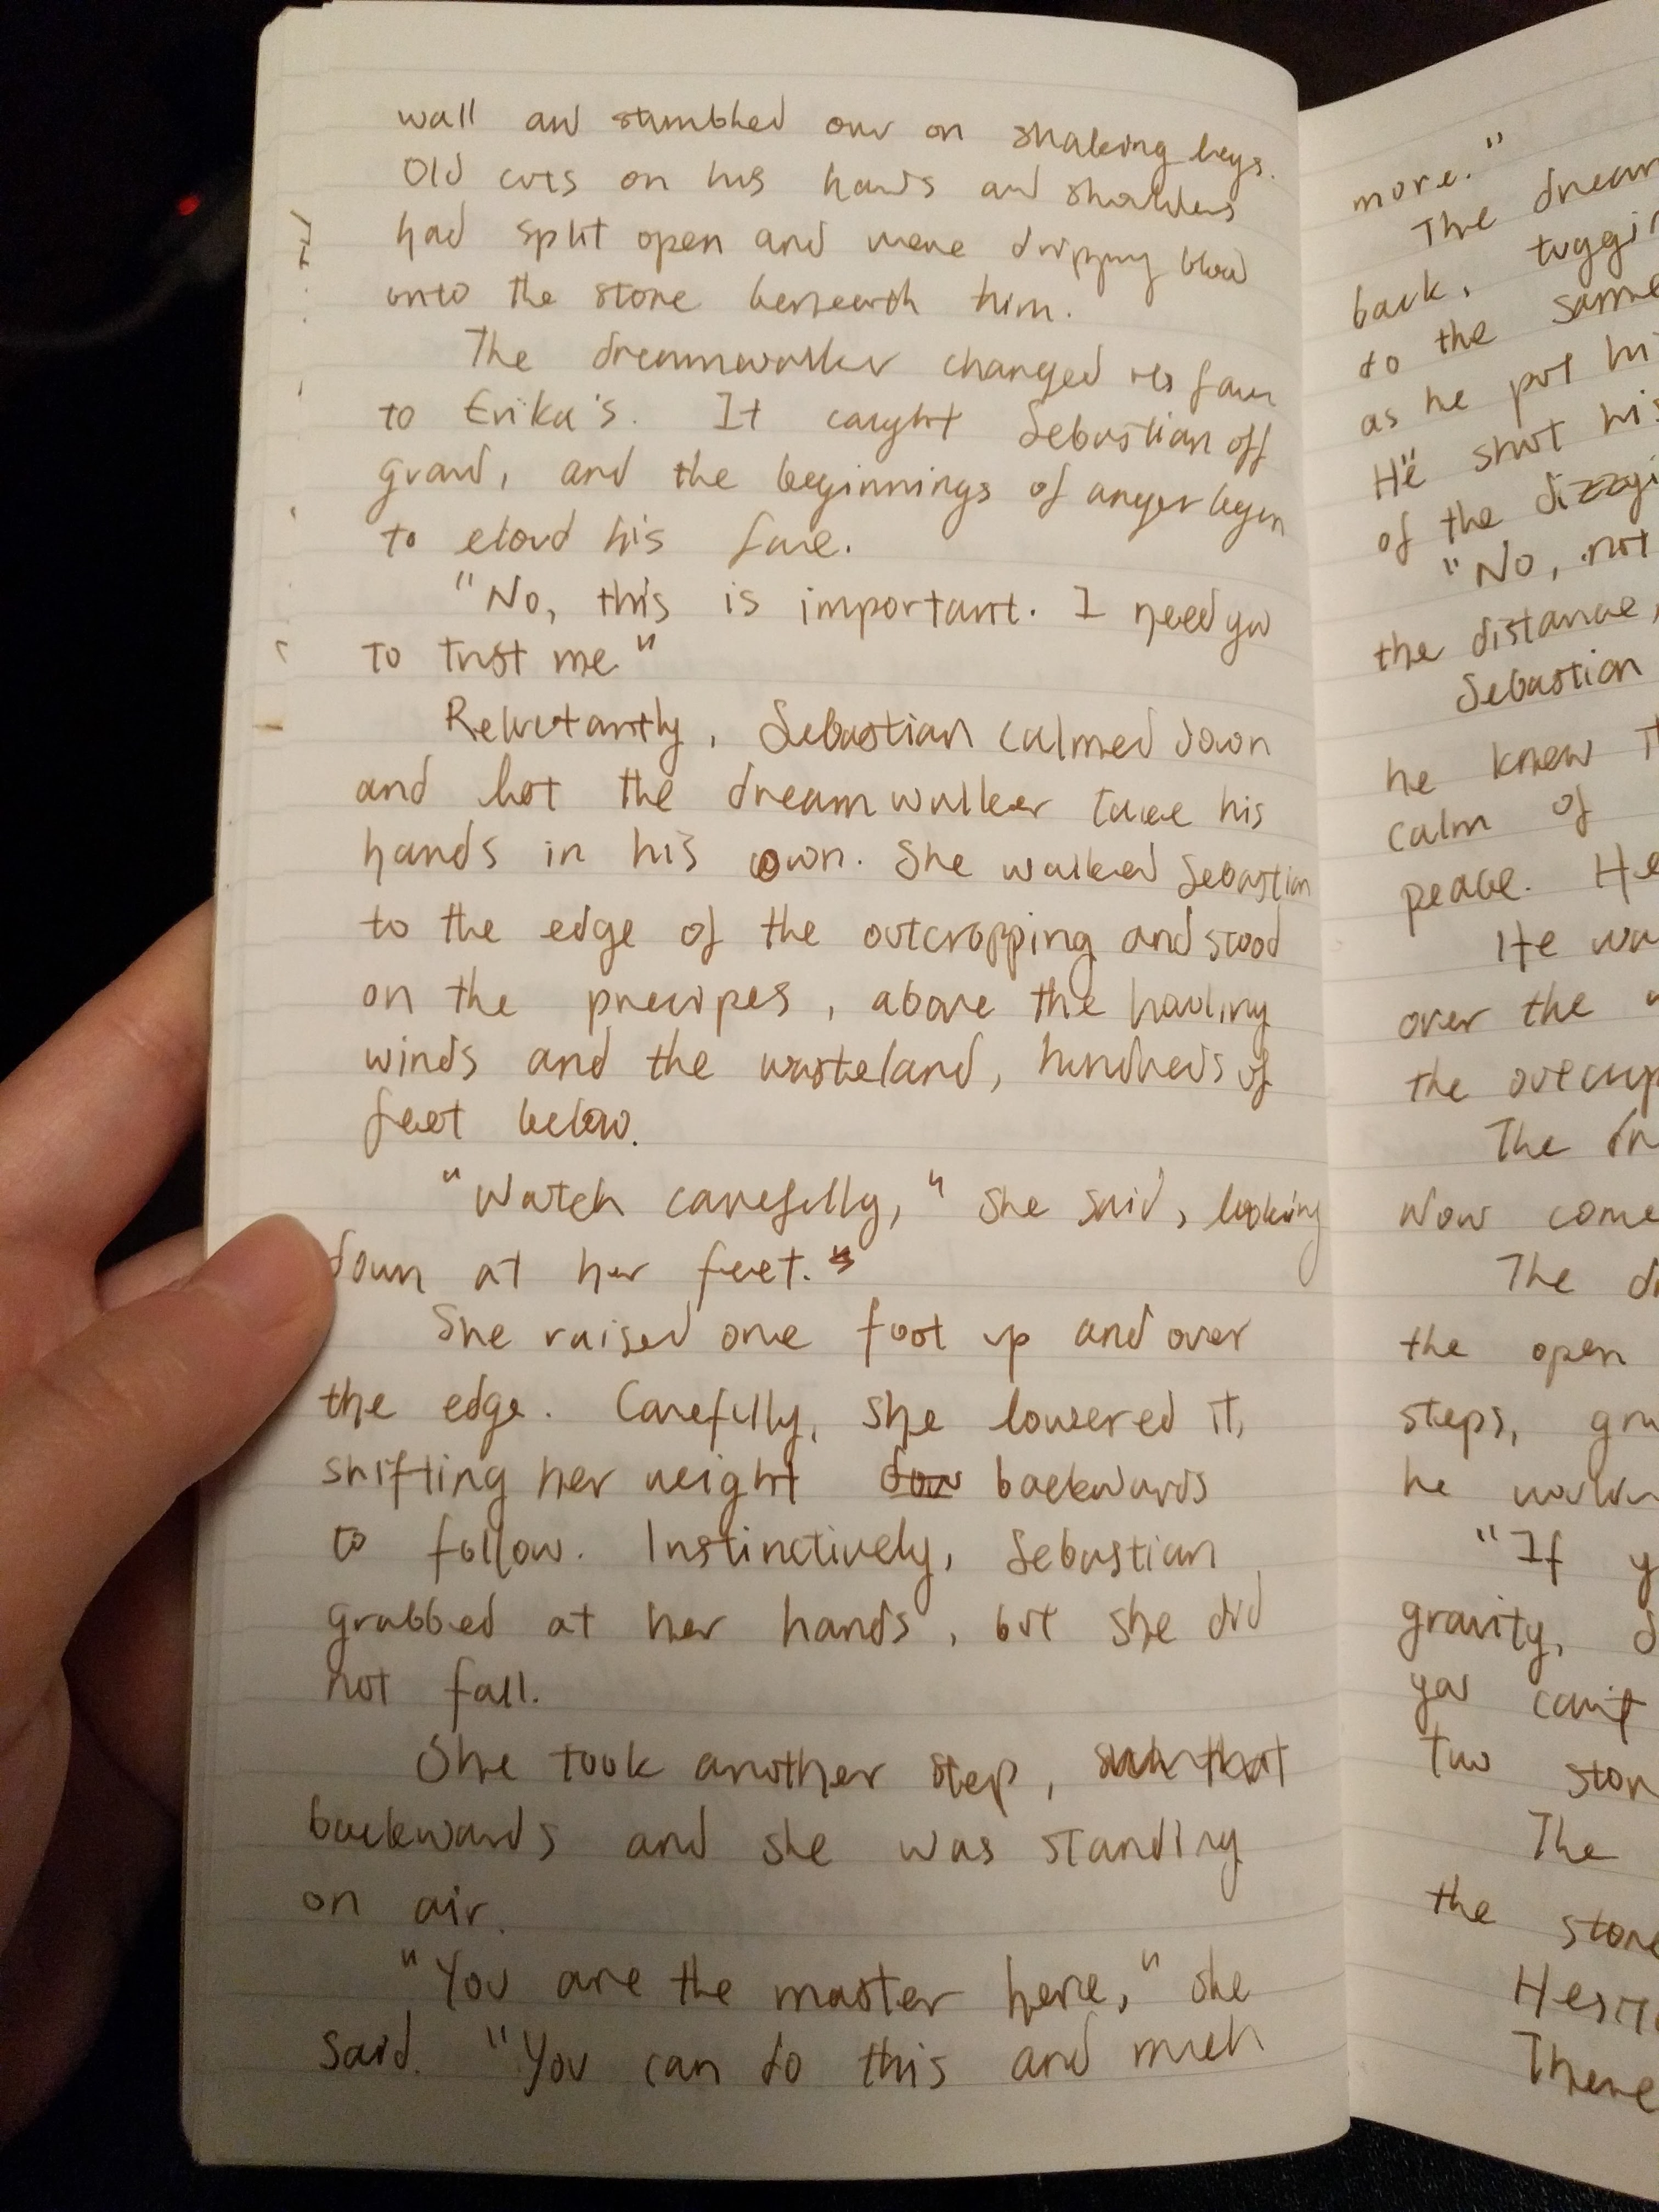 wall and stumbled over on shaking legs.
Old cuts on his hands and shoulders
had split open and were dripping blood
onto the stone beneath him.
The dreamwalker changed its face
to Erika's. It caught Sebastian off
guard, and the beginnings of anger began
to cloud his face.
"No, this is important. I need you
to trust me"
Reluctantly, Sebastian calmed down
and let the dreamwalker take his
hands in his own. She walked Sebastian
to the edge of the outcropping and stood
on the precipes, above the howling
winds and the wasteland, hundreds of
feet below.
"Watch carefully," she said, looking
down at her feet."
She raised one foot up and over
the edge. Carefully, she lowered it,
shifting her weight backwards
to follow. Instinctively, Sebastian
grabbed at her hands, but she did
not fall.
She took another step,
backwards and she was standing
on air.
"You are the master here," she
said. "You can do this and much
more."
The
back,
to the same
as he put
He shut his
of the
"No, not
the distance,
Sebastian
he knew
calm of
peace. He
He
over the
the
The
Now come
The
the open
steps,
he
"If
gravity,
you can't
two
The
the stone